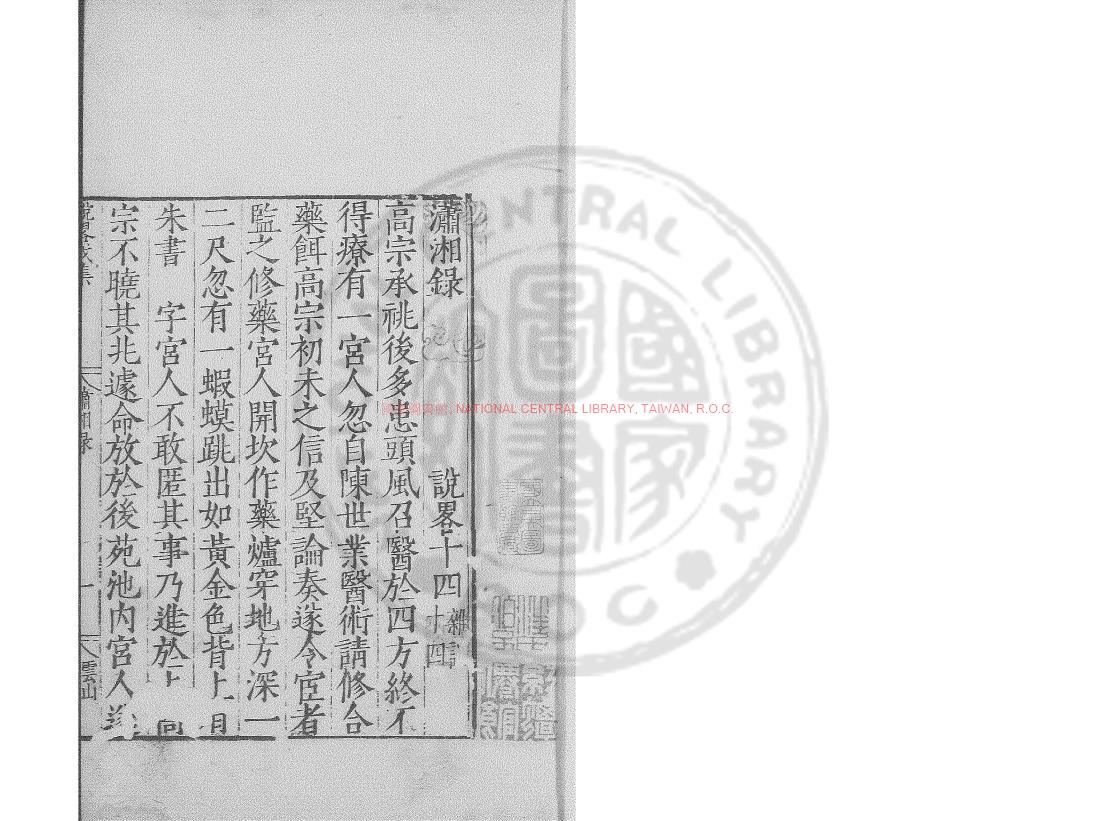 瀟湘錄 說畧十四 雜記十四
高宗承祧後多患頭風召醫於四方終不
得療有一宮人忽自陳世業醫術請修合
藥餌高宗初未之信及堅論奏遂令宦者
監之修藥宮人開坎作藥爐穿地方深一
二尺忽有一蝦蟆跳出如黃金色背上有
朱書 字宮人不敢匿其事乃進於上
宗不曉其兆遽命放於後苑池内宮人
瀟湘錄 一 雲山
NATIONAL CENTRAL LIBRARY, TAIWAN, R.O.C.
CENTRAL LIBRARY
ROC
國家圖書